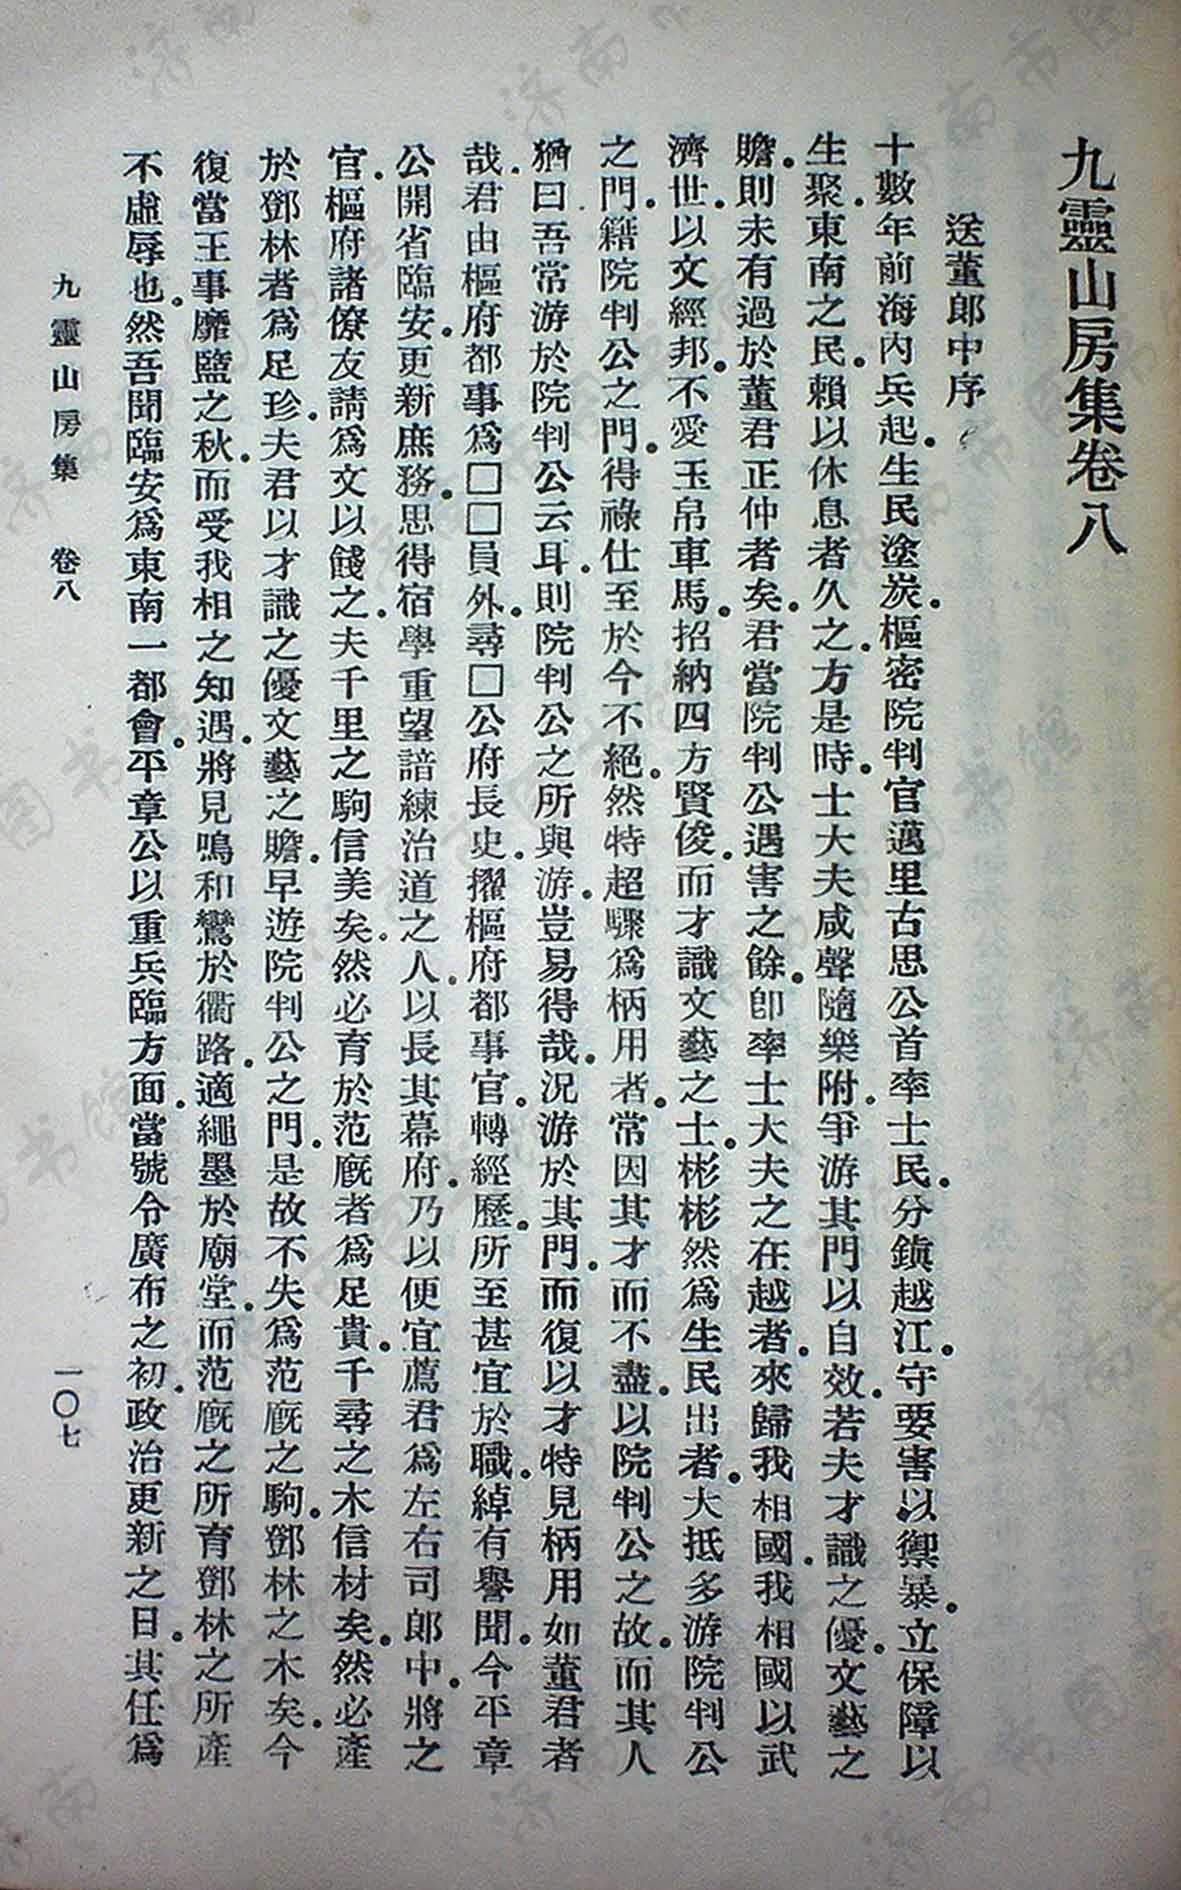 九靈山房集卷八
送董郎中序
十數年前海內兵起。生民塗炭。樞密院判官邁里古思公首率士民。分鎮越江。守要害以禦暴。立保障以
生聚。東南之民。賴以休息者久之。方是時。士大夫咸聲隨樂附。爭游其門以自效。若夫才識之優。文藝之
贍。則未有過於董君正仲者矣。君當院判公遇害之餘。卽率士大夫之在越者。來歸我相國。我相國以武
濟世。以文經邦。不愛玉帛車馬。招納四方賢俊。而才識文藝之士。彬彬然爲生民出者。大抵多游院判公
之門。籍院判公之門。得祿仕至於今不絕。然特超驟爲柄用者。常因其才而不盡。以院判公之故。而其人
猶曰。吾常游於院判公云耳。則院判公之所與游。豈易得哉。況游於其門。而復以才特見柄用如董君者
哉。君由樞府都事爲□□員外。尋□公府長史。擢樞府都事官。轉經歷。所至甚宜於職。綽有譽聞。今平章
公開省臨安。更新庶務。思得宿學重望諳練治道之人。以長其幕府。乃以便宜薦君爲左右司郎中。將之
官。樞府諸僚友請爲文以餞之。夫千里之駒信美矣。然必育於范廐者爲足貴。千尋之木信材矣。然必產
於鄧林者爲足珍。夫君以才識之優。文藝之贍。早遊院判公之門。是故不失爲范廐之駒。鄧林之木矣。今
復當王事靡鹽之秋。而受我相之知遇。將見鳴和鸞於衢路。適繩墨於廟堂。而范廐之所育。鄧林之所產
不虛辱也。然吾聞臨安爲東南一都會。平章公以重兵臨方面。當號令廣布之初。政治更新之日。其任爲
九靈山房集 卷八 一〇七